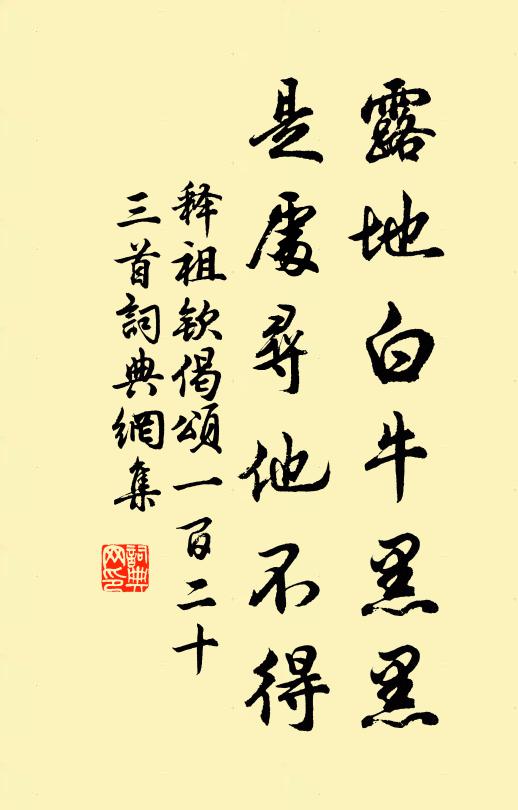 露地白牛黑黑
是處尋他不得
释祖欽偈頌一百二十
三首詞典網集
詞典
网印